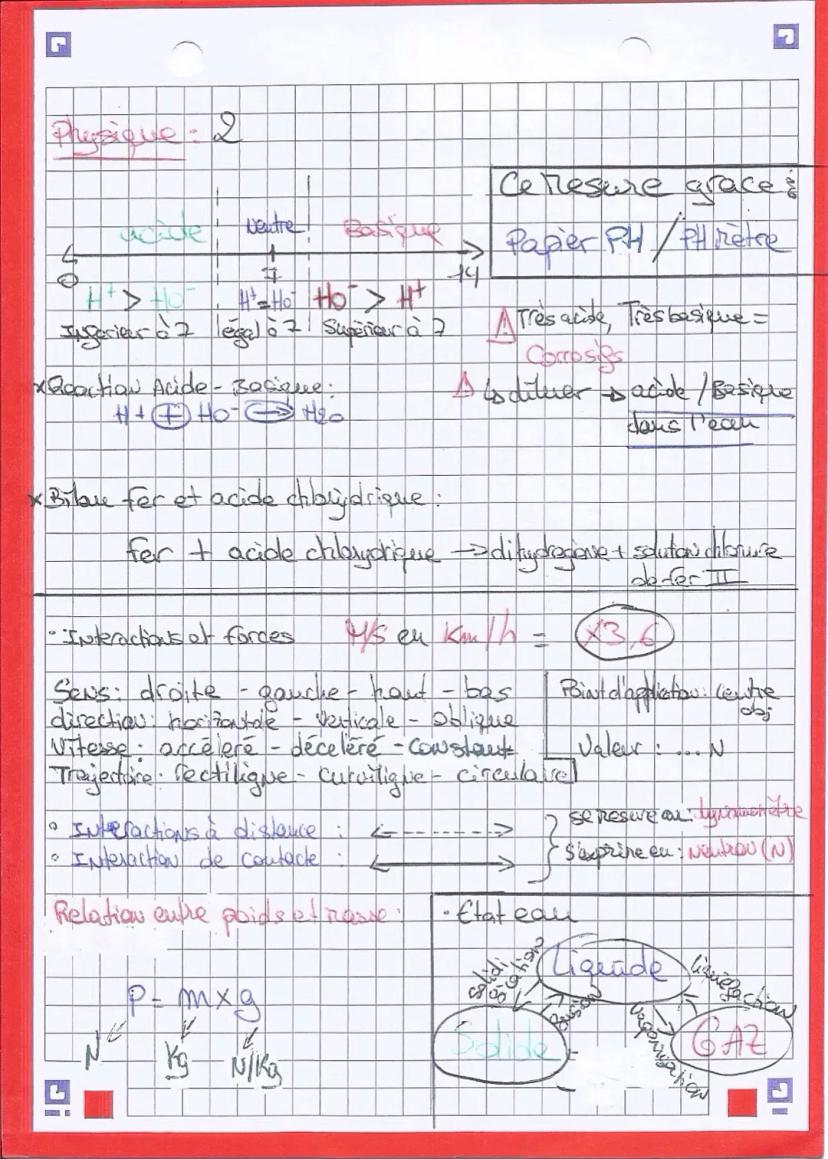 Physique : 2
Ce Mesure grace :
Papier PH / PH Mètre
acide Neutre Basique
0 7 14
H+ > HO- H+ = HO- HO- > H+
Inferieur à 7 légal à 7 Supérieur à 7
⚠ Très acide, Très basique =
Corrosifs
⚠ ↳ diluer → acide / Basique
dans l'eau
x Reaction Acide - Basique :
H+ + HO- → H2O
x Bilan fer et acide chlorydrique :
fer + acide chlorydrique → dihydrogène + solution chlorure
de fer II
· Interactions et forces M/S en Km/h = x3,6
Sens : droite - gauche - haut - bas
direction : horizontale - verticale - oblique
Vitesse : accéleré - déceleré - constant
Trajectoire : rectiligne - curviligne - circulaire
Point d'appliation : centre
obj
Valeur : ... N
° Interactions à distance :
° Interaction de contacte :
se mesure au : dynamomètre
s'exprime en : neutron (N)
Relation entre poids et masse :
P = m x g
N Kg N/Kg
· Etat eau
Liquide
solidification
fusion
liquéfaction
vaporisation
Solide
GAZ